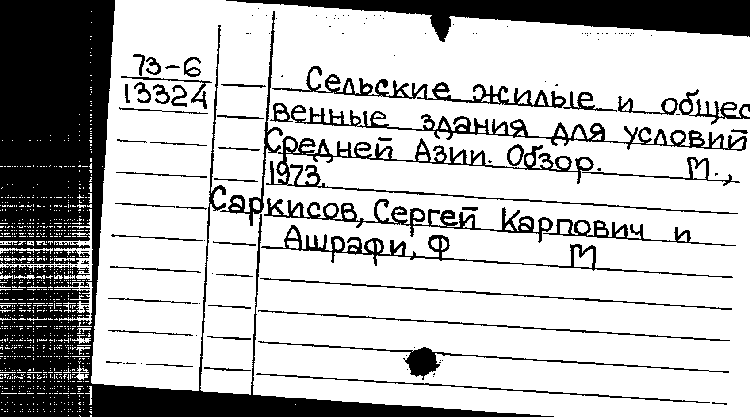 73-6
13324
Сельские жилые и общес
венные здания для условий
Средней Азии. Обзор. М.,
1973.
Саркисов, Сергей Карпович и
Ашрафи, Ф М